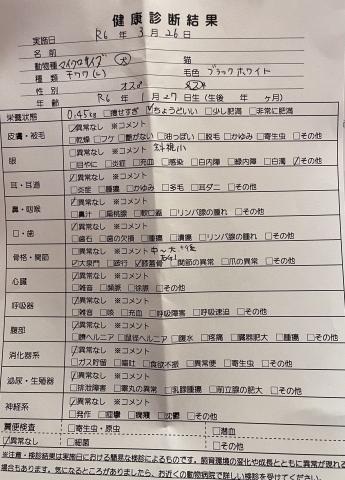 健康診断結果
実施日 R6 年 3 月 26 日
名前
動物種 マイクロサイズ 犬 猫
種類 チワワ(L) 毛色 ブラックホワイト
性別 オス♂ メス♀
年齢 R6 年 1 月 27 日生(生後 年 ヶ月)
栄養状態 0.45kg □痩せすぎ ☑ちょうどいい □少し肥満 □非常に肥満
皮膚・被毛 ☑異常なし ※コメント
□乾燥 □フケ □艶がない □油っぽい □脱毛 □かゆみ □寄生虫 □その他
眼 □異常なし ※コメント 斜視小
□目やに □炎症 □充血 □感染 □白内障 □緑内障 □白濁 ☑その他
耳・耳道 ☑異常なし ※コメント
□炎症 □腫瘍 □かゆみ □多毛 □耳ダニ □その他
鼻・咽喉 ☑異常なし ※コメント
□鼻汁 □扁桃腺 □軟口蓋 □リンパ腺の腫れ □その他
口・歯 ☑異常なし ※コメント
□歯石 □歯の欠損 □腫瘍 □潰瘍 □リンパ腺の腫れ □その他
骨格・関節 □異常なし ※コメント 中~大
☑大泉門 □跛行 ☑膝蓋骨 □関節の異常 □爪の異常 □その他
心臓 ☑異常なし ※コメント
□雑音 □頻脈 □徐脈 □その他
呼吸器 ☑異常なし ※コメント
□雑音 □咳 □充血 □呼吸障害 □呼吸速迫 □その他
腹部 ☑異常なし ※コメント
□臍ヘルニア □鼠径ヘルニア □腹水 □疼痛 □臓器肥大 □腫瘍 □その他
消化器系 ☑異常なし ※コメント
□ガス貯留 □嘔吐 □食欲不振 □異常便 □寄生虫 □その他
泌尿・生殖器 ☑異常なし ※コメント
□排泄障害 □睾丸の異常 □乳腺腫瘍 □前立腺の肥大 □その他
神経系 ☑異常なし ※コメント
□発作 □痙攣 □その他
糞便検査 □寄生虫・原虫 □潜血
☑異常なし □細菌 □その他
※注意・検診結果は実施日における簡易な検診によるものです。飼育環境の変化や成長とともに異常が現れる
場合もあります。気になるところがありましたら、お近くの動物病院で詳しい検診を受けてください。